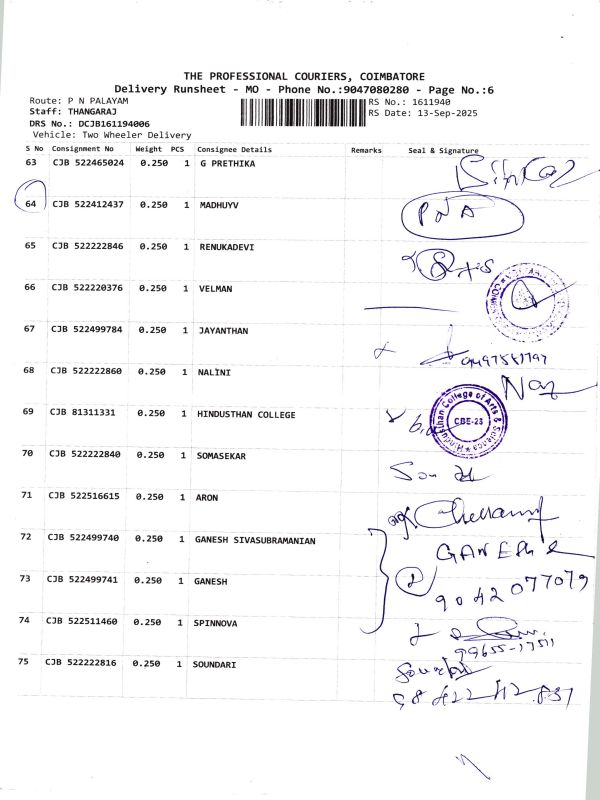 THE PROFESSIONAL COURIERS, COIMBATORE
Delivery Runsheet - MO - Phone No.:9047080280 - Page No.:6
Route: P N PALAYAM RS No.: 1611940
Staff: THANGARAJ RS Date: 13-Sep-2025
DRS No.: DCJB161194006
Vehicle: Two Wheeler Delivery
S No Consignment No Weight PCS Consignee Details Remarks Seal & Signature
63 CJB 522465024 0.250 1 G PRETHIKA
64 CJB 522412437 0.250 1 MADHUYV PNA
65 CJB 522222846 0.250 1 RENUKADEVI
66 CJB 522220376 0.250 1 VELMAN
67 CJB 522499784 0.250 1 JAYANTHAN
68 CJB 522222860 0.250 1 NALINI
69 CJB 81311331 0.250 1 HINDUSTHAN COLLEGE Hindusthan College of Arts & Science CBE-23
70 CJB 522222840 0.250 1 SOMASEKAR
71 CJB 522516615 0.250 1 ARON
72 CJB 522499740 0.250 1 GANESH SIVASUBRAMANIAN
73 CJB 522499741 0.250 1 GANESH 9042077079
74 CJB 522511460 0.250 1 SPINNOVA 99655-17511
75 CJB 522222816 0.250 1 SOUNDARI